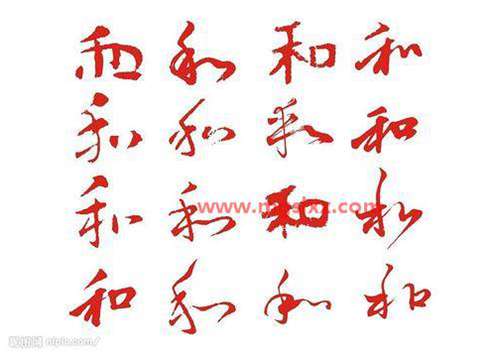 和 和 和 和
和 和 和 和
和 和 和 和
www.mcslxz.com
和 和 和 和
昵图网 nipic.com/